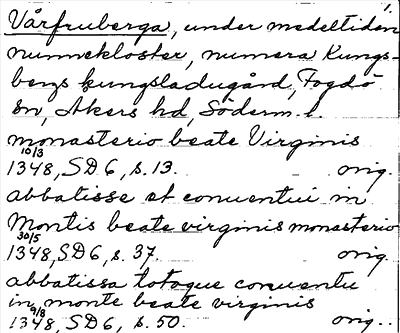 1.
Vårfruberga, under medeltiden
nunnekloster, numera Kungs-
bergs kungsladugård, Fogdö
sn, Åkers hd, Söderm. l.
monasterio beate Virginis
10/3
1348, SD 6, s. 13. orig.
abbatisse et conuentui in
Montis beate virginis monasterio
30/5
1348, SD 6, s. 37. orig.
abbatissa totaque conuentu
in monte beate virginis
9/8
1348, SD 6, s. 50. orig..